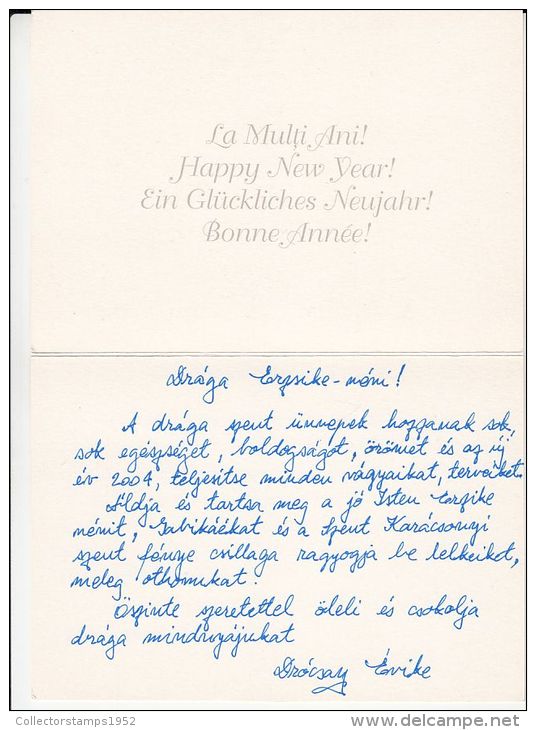 La Mulţi Ani!
Happy New Year!
Ein Glückliches Neujahr!
Bonne Année!
Drága Erzsike-néni!
A drága szent ünnepek hozzanak sok,
sok egészséget, boldogságot, örömet és az új
év 2004, teljesítse minden vágyaikat, terveiket.
Áldja és tartsa meg a jó Isten Erzike
nénit, Gabikáékat és a Szent Karácsonyi
szent fénye csillaga ragyogja be lelkeiket,
meleg otthonukat.
Őszinte szeretettel öleli és csókolja
drága mindnyájukat
Évike
Collectorstamps1952
www.delcampe.net